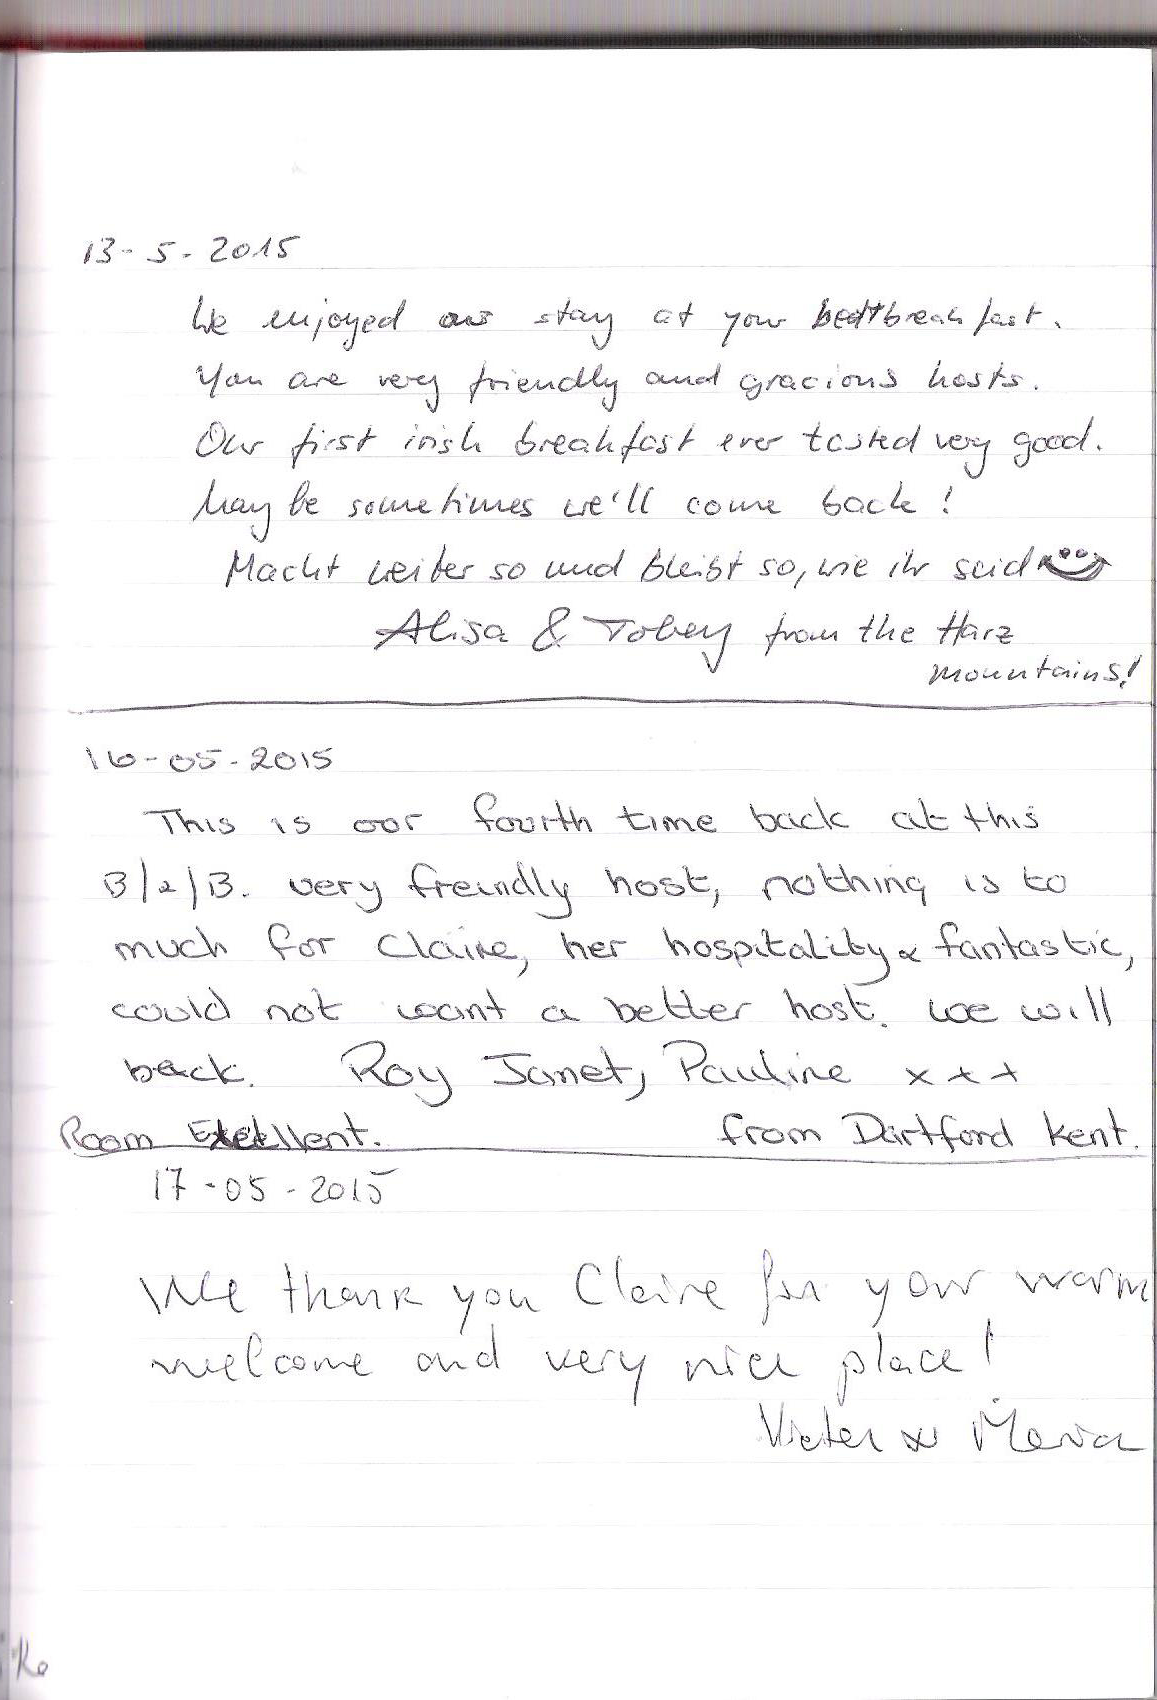 13-5-2015
We enjoyed our stay at your bed+breakfast.
You are very friendly and gracious hosts.
Our first irish breakfast ever tasted very good.
May be sometimes we'll come back!
Macht weiter so und bleibt so, wie ihr seid
Alisa & Tobey from the Harz
mountains!
16-05-2015
This is our fourth time back at this
B/2/B. very freindly host, nothing is to
much for Claire, her hospitality & fantastic,
could not want a better host. we will
back. Roy Janet, Pauline x x x
Room Excellent. from Dartford Kent.
17-05-2015
We thank you Claire for your warm
welcome and very nice place!
&